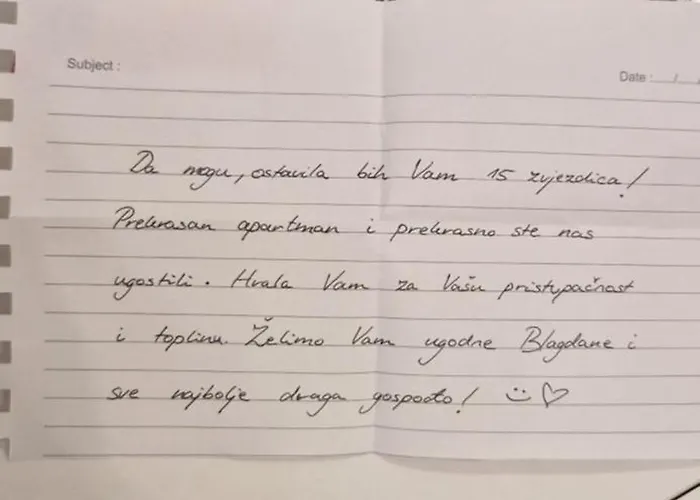 Subject :
Date :..../..../
Da mogu, ostavila bih Vam 15 zvjezdica!
Prekrasan apartman i prekrasno ste nas
ugostili. Hvala Vam za Vašu pristupačnost
i toplinu. Želimo Vam ugodne Blagdane i
sve najbolje draga gospođo! :) ♡